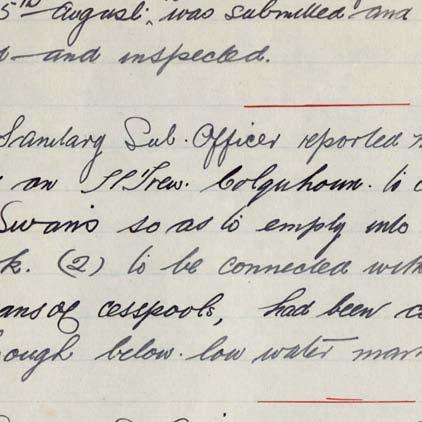 5th August, was submitted and
d and inspected.
Sanitary Sub. Officer reported
on Colquhoun. to
Swans so as to empty into
k. (2) to be connected with
ans of cesspools, had been
ough below low water mar